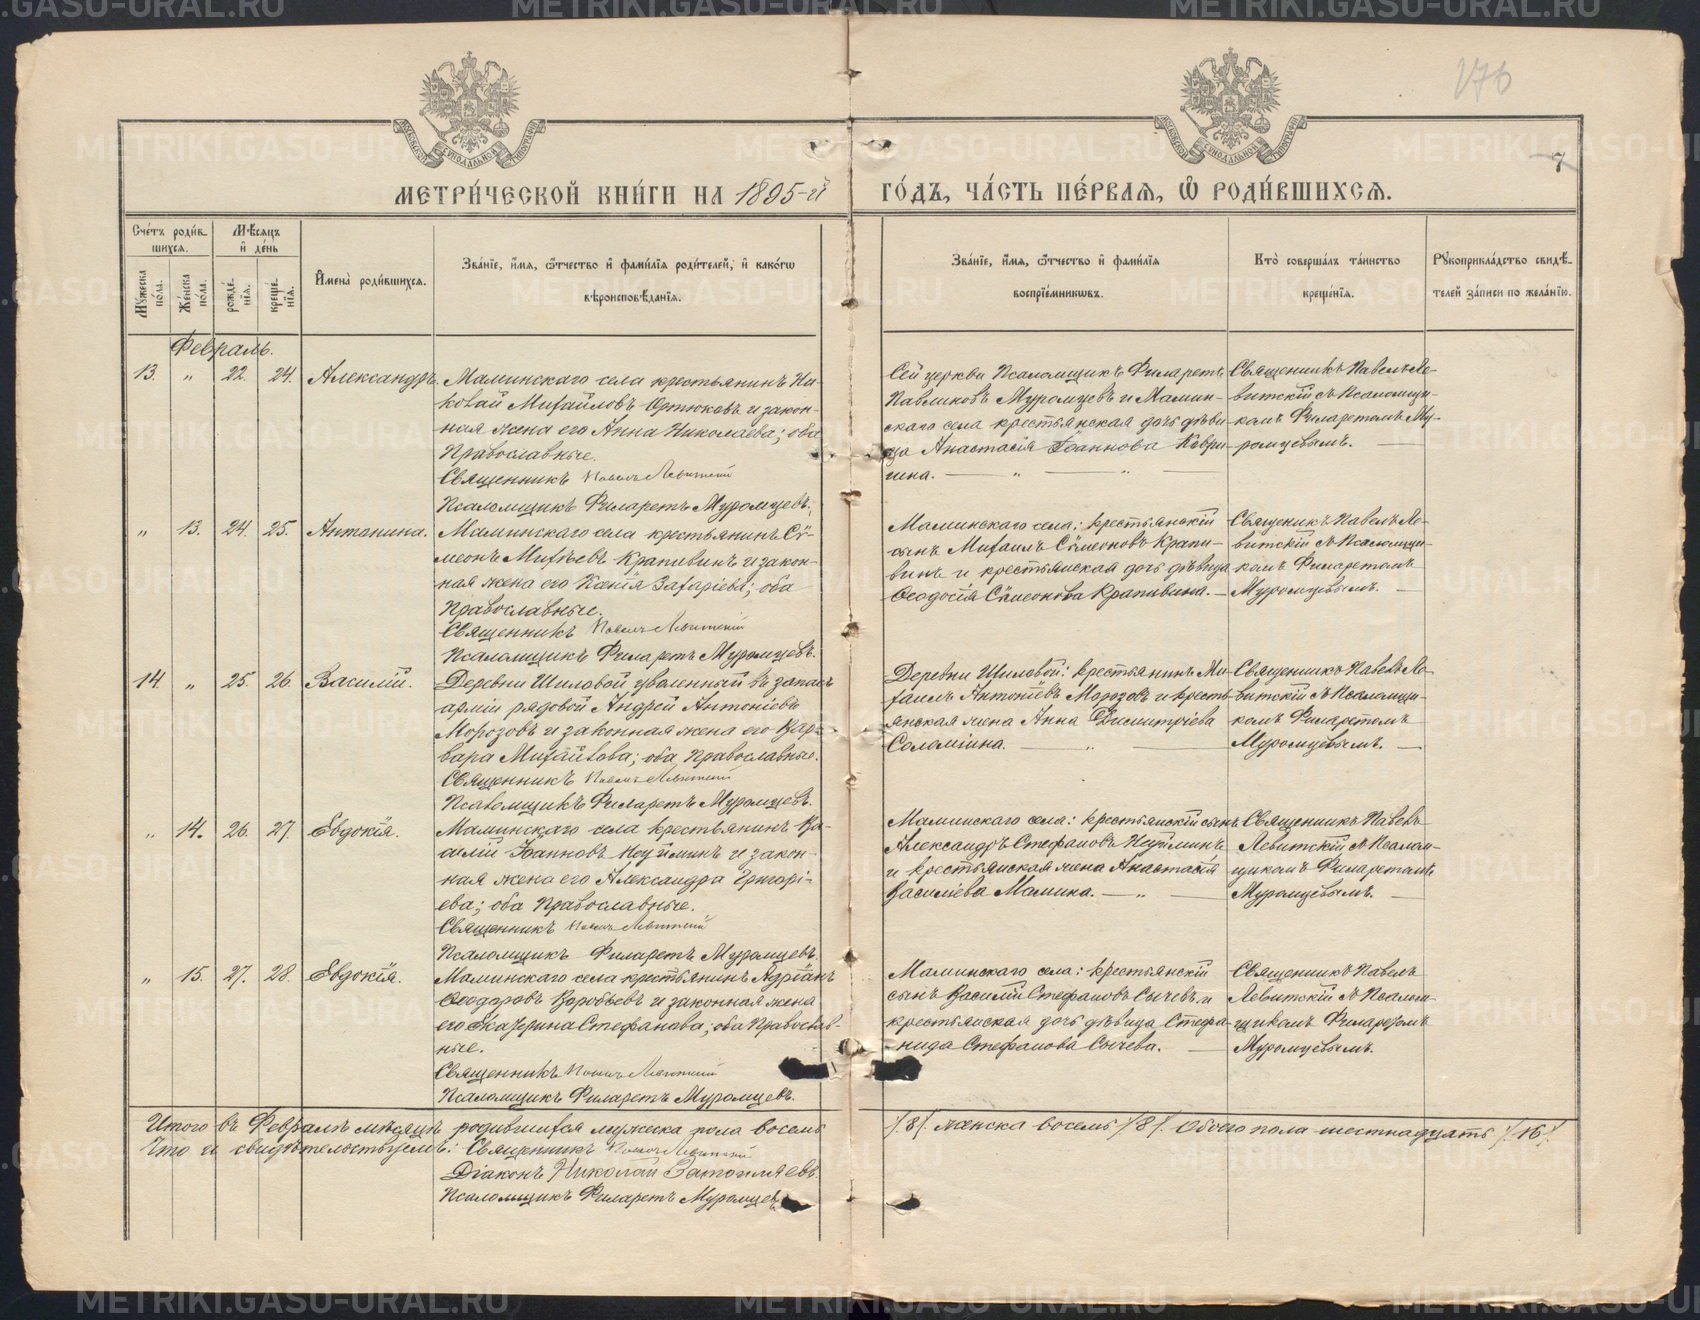 176
7
МЕТРИ́ЧЕСКОЙ КНИ́ГИ НА 1895-й ГО́ДЪ, ЧА́СТЬ ПЕ́РВАЯ, Ѡ РОДИ́ВШИХСЯ.
Сче́тъ роди́в-
шихся.
Мѣ́сяцъ
и де́нь
Му́жеска по́ла.
Же́нска по́ла.
рожде́нїя.
креще́нїя.
И҆мена̀ роди́вшихся.
Зва́нїе, и҆́мя, ѻ҆́тчество и҆ фами́лїя роди́телей, и҆ како́гѡ
вѣроисповѣ́данїя.
Зва́нїе, и҆́мя, ѻ҆́тчество и҆ фами́лїя
воспрїе́мникѡвъ.
Кто̀ соверша́лъ та́инство
креще́нїя.
Рꙋкоприкла́дство свидѣ́-
телей за́писи по жела́нїю.
Февраль.
13. „ 22. 24. Александръ.
Маминскаго села крестьянинъ Ни-
колай Михайловъ Ортюковъ и закон-
ная жена его Анна Николаева; оба
Православные.
Священникъ Павелъ Левитскій
Псаломщикъ Филаретъ Муромцевъ.
Сей церкви Псаломщикъ Филаретъ
Павликовъ Муромцевъ и Мамин-
скаго села крестьянская дочь дѣви-
ца Анастасія Іоаннова Коври-
гина. — „ — „ —
Священникъ Павелъ Ле-
витскій съ Псаломщи-
комъ Филаретомъ Му-
ромцевымъ. —
„ 13. 24. 25. Антонина.
Маминскаго села крестьянинъ Сѵ-
меонъ Михѣевъ Крапивинъ и закон-
ная жена его Ксенія Захаріева; оба
Православные.
Священникъ Павелъ Левитскій
Псаломщикъ Филаретъ Муромцевъ.
Маминскаго села: крестьянскій
сынъ Михаилъ Сѵмеоновъ Крапи-
винъ и крестьянская дочь дѣвица
Ѳеодосія Сѵмеонова Крапивина. —
Священикъ Павелъ Ле-
витскій съ Псаломщи-
комъ Филаретомъ
Муромцевымъ. —
14. „ 25. 26. Василій.
Деревни Шиловой уволенный въ запасъ
арміи рядовой Андрей Антоніевъ
Морозовъ и законная жена его Вар-
вара Михайлова; оба Православные.
Священникъ Павелъ Левитскій
Псаломщикъ Филаретъ Муромцевъ.
Деревни Шиловой: крестьянинъ Ми-
хаилъ Антоніевъ Морозовъ и кресть-
янская жена Анна Димитріева
Соломина. — „ —
Священникъ Павелъ Ле-
витскій съ Псаломщи-
комъ Филаретомъ
Муромцевымъ. —
„ 14. 26. 27. Евдокія.
Маминскаго села крестьянинъ Ва-
силій Іоанновъ Неуйминъ и закон-
ная жена его Александра Григорі-
ева; оба Православные.
Священникъ Павелъ Левитскій
Псаломщикъ Филаретъ Муромцевъ.
Маминскаго села: крестьянскій сынъ
Александръ Стефановъ Неуйминъ
и крестьянская жена Анастасія
Василіева Мамина. — „ —
Священникъ Павелъ
Левитскій съ Псалом-
щикомъ Филаретомъ
Муромцевымъ. —
„ 15. 27. 28. Евдокія.
Маминскаго села крестьянинъ Адріанъ
Ѳеодоровъ Воробьевъ и законная жена
его Екатерина Стефанова; оба Православ-
ные.
Священникъ Павелъ Левитскій
Псаломщикъ Филаретъ Муромцевъ.
Маминскаго села: крестьянскій
сынъ Василій Стефановъ Сычевъ и
крестьянская дочь дѣвица Стефа-
нида Стефанова Сычева. —
Священникъ Павелъ
Левитскій съ Псалом-
щикомъ Филаретомъ
Муромцевымъ.
Итого въ Февралѣ мѣсяцѣ родившихся мужеска пола восемь /8/. женска восемь /8/. Обоего пола шестнадцать /16/.
Что и свидѣтельствуемъ: Священникъ Павелъ Левитскій
Діаконъ Николай Затопляевъ.
Псаломщикъ Филаретъ Муромцевъ.
METRIKI.GASU-URAL.RU